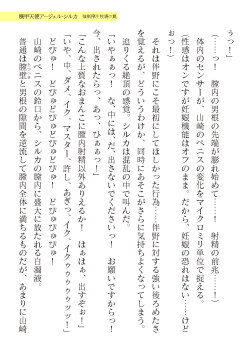 機甲天使アージェル・シルカ
うっ！」
（……っ！　膣内の男根の先端が膨れ始めて……！　射精の前兆……！）
体内のセンサーが、山崎のペニスの変化をマイクロミリ単位で捉える。
（性感はオンですが妊娠機能はオフのまま。だから、妊娠の恐れはなく……けど
おっ！）
それは伴野にこそ最初にしてほしかった行為……伴野に対する強い後ろめたさ
を覚えるが、どういうわけか、同時にあそこがさらに気持ちよくなってしまう。
迫りくる絶頂の感覚。シルカは混乱の中で叫んだ。
「いやぁぁっ！　な、中には、だ、出さないでくださいいっ　お願いですからっ！
今、出されたらっ、あっ、ひぁぁっ！」
「こんな上質なおまんこに膣内射精以外ありえるか！　はぁはぁ、出すぞぉ！」
「いや、中、ダメ、イク、マスター、許し、あぎっ、イク、イクぅぅぅぅッッ！」
どびゅるっ！　どびゅ！　どびゅぅびゅるぅ！
どぴゅ！　どぴゅっ！　どびゅどびゅびゅっ！
山崎のペニスの鈴口から、シルカの膣内に盛大に放たれる白濁液。
普通は膣壁と男根の隙間を逆流して膣内全体に満ちるものだが、あまりに山崎